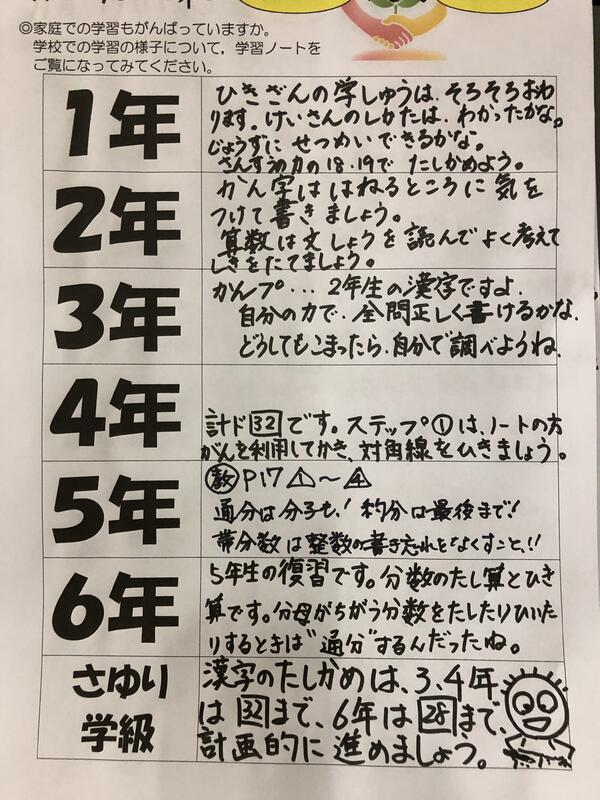 ◎家庭での学習もがんばっていますか。
学校での学習の様子について，学習ノートを
ご覧になってみてください。
1年
ひきざんの学しゅうは、そろそろおわ
ります。けいさんのしかたは、わかったかな。
じょうずに せつめいできるかな。
さんすうの力の18.19で たしかめよう。
2年
かん字は はねるところに 気を
つけて書きましょう。
算数は文しょうを読んで よく考えて
しきをたてましょう。
3年
かんプ… 2年生の漢字ですよ.
自分の力で、全問正しく書けるかな.
どうしてもこまったら、自分で調べようね.
4年
計ド32です。ステップ①は、ノートの方
がんを利用してかき、対角線をひきましょう。
5年
教P17 △1～△4
通分は分子も! 約分は最後まで!
帯分数は整数の書き忘れをなくすこと!!
6年
5年生の復習です。分数のたし算とひき
算です。分母がちがう分数をたしたりひいた
りするときは"通分"するんだったね。
さゆり
学級
漢字のたしかめは、3、4年
は32まで、6年は28まで、
計画的に進めましょう。